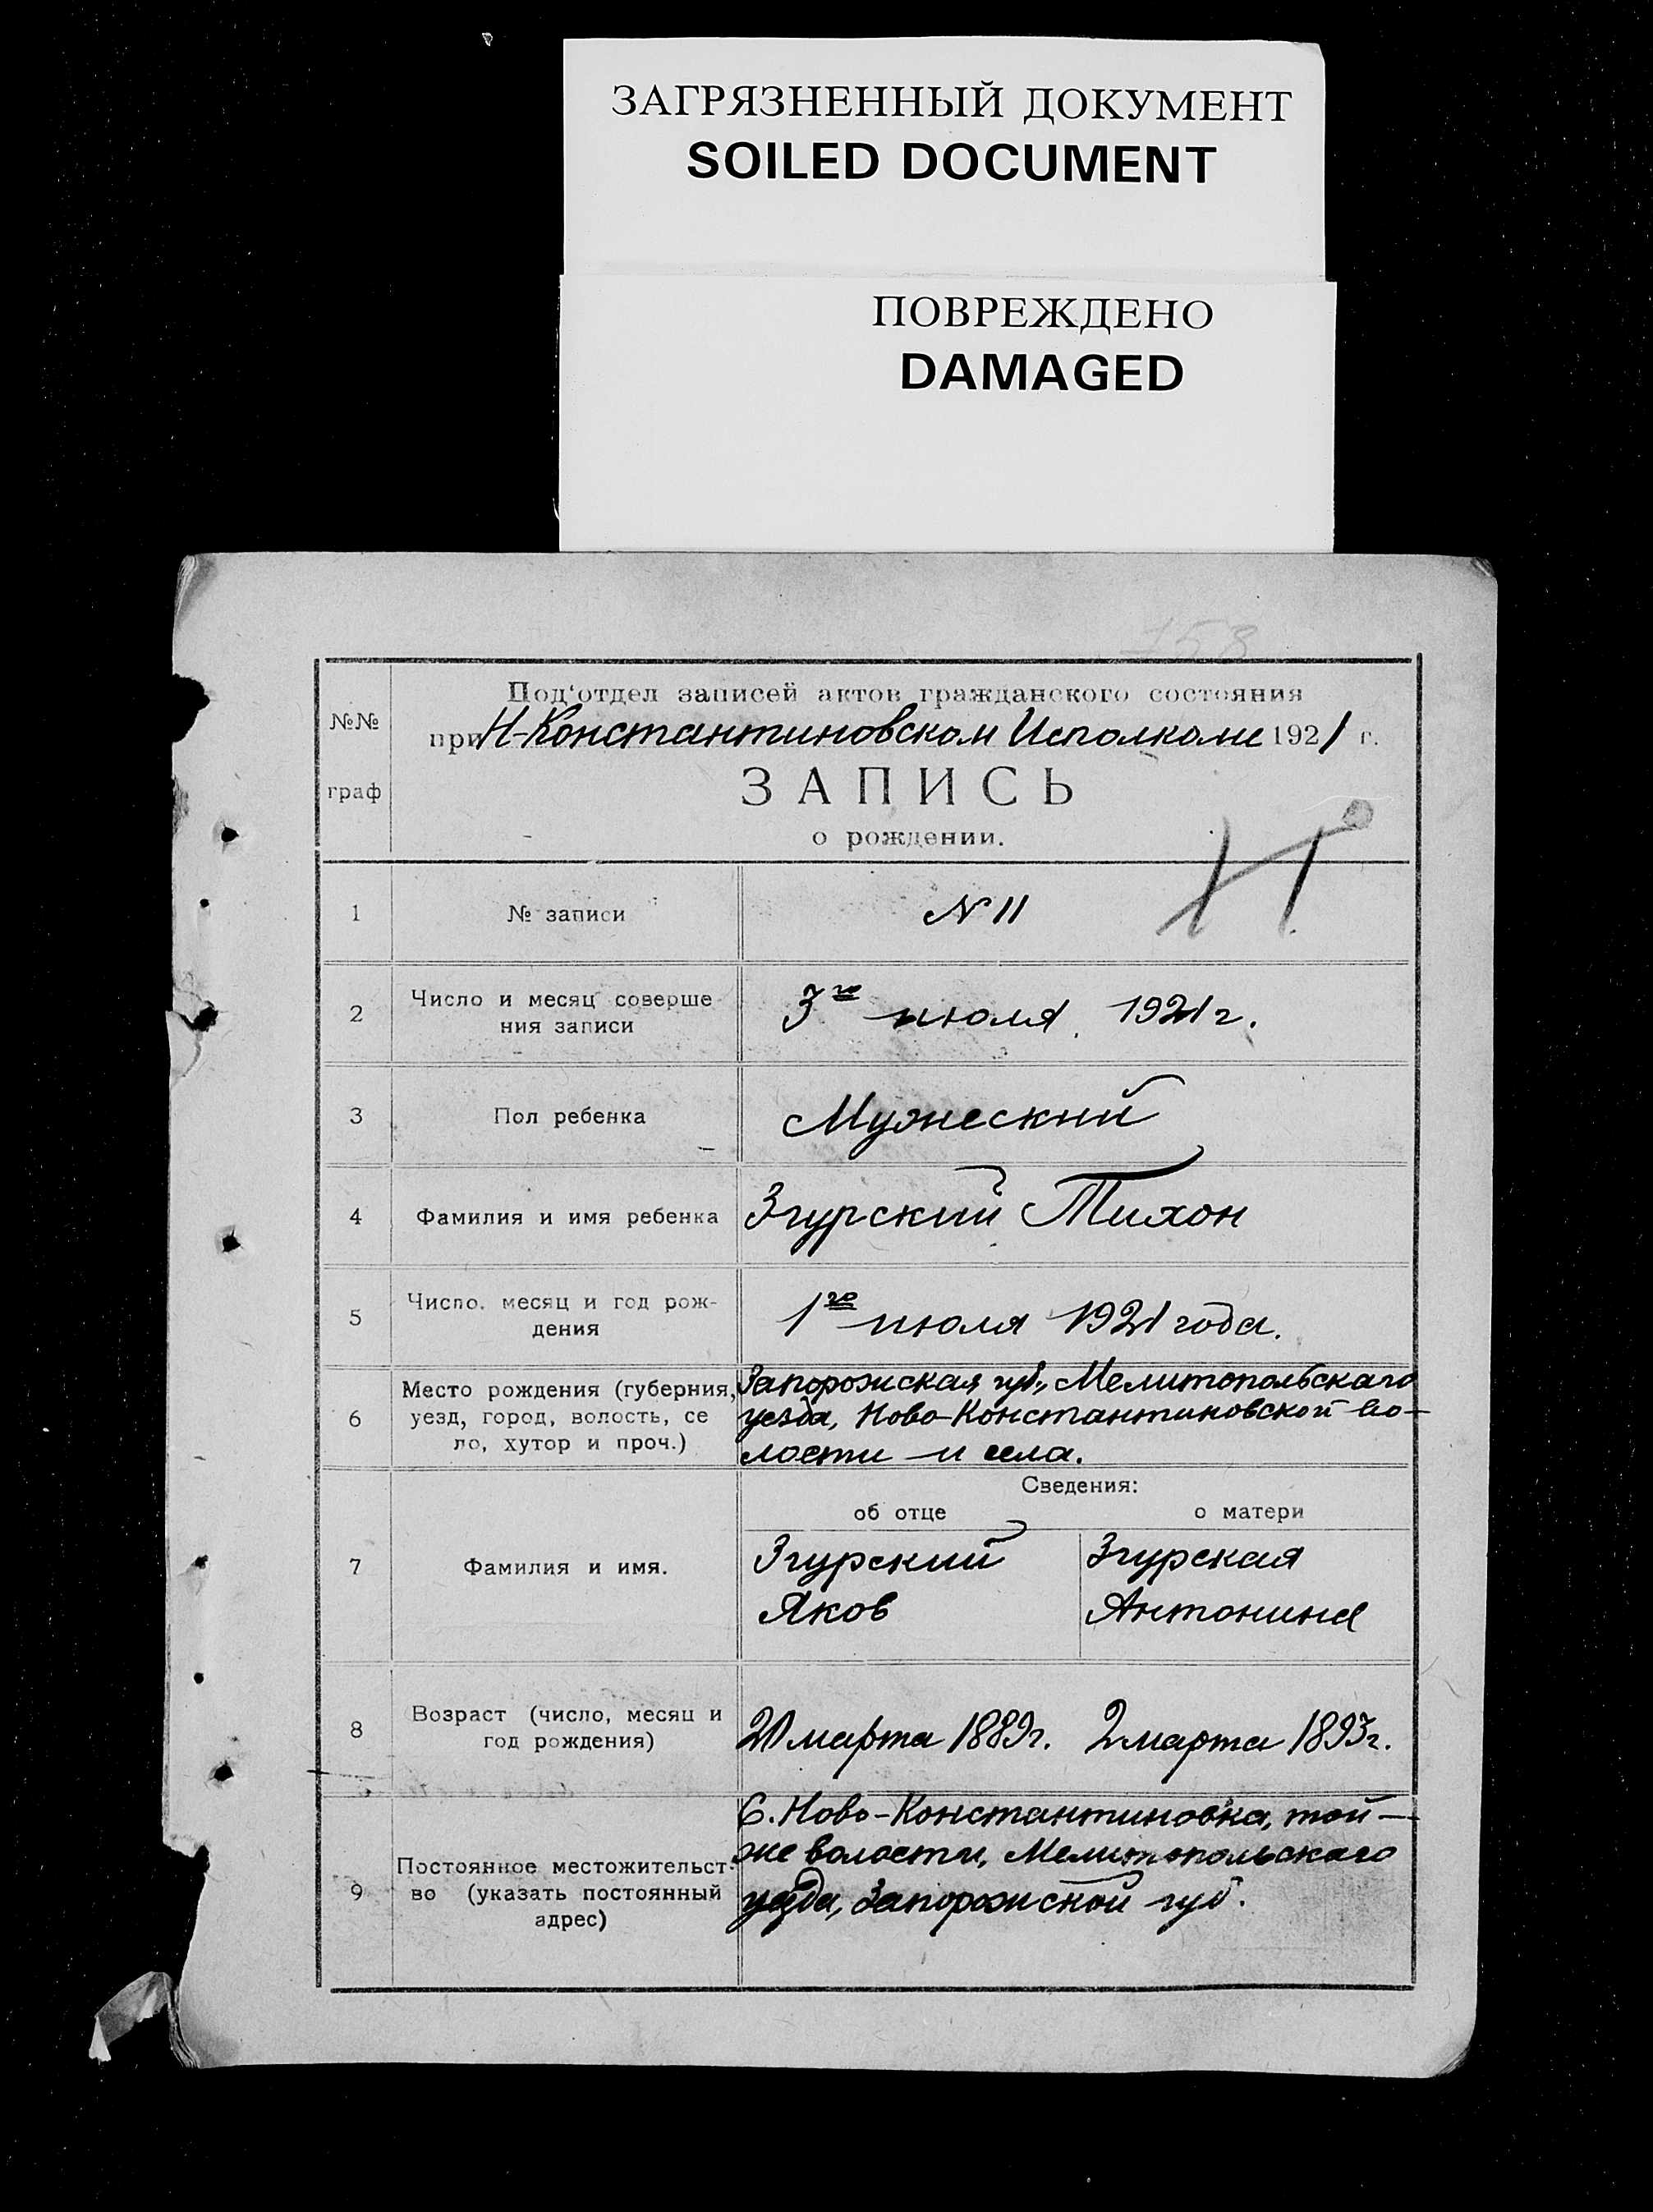 ЗАГРЯЗНЕННЫЙ ДОКУМЕНТ
SOILED DOCUMENT
ПОВРЕЖДЕНО
DAMAGED
158
№№
граф
Под'отдел записей актов гражданского состояния
при Н-Константиновском Исполкоме 1921 г.
ЗАПИСЬ
о рождении.
1 № записи N 11
2 Число и месяц соверше
ния записи
3го июля 1921 г.
3 Пол ребенка Мужеский
4 Фамилия и имя ребенка Згурский Тихон
5 Число, месяц и год рож-
дения
1го июля 1921 года.
6 Место рождения (губерния,
уезд, город, волость, се
ло, хутор и проч.)
Запорожская губ., Мелитопольскаго
уезда, Ново-Константиновской во-
лости и села.
Сведения:
об отце о матери
7 Фамилия и имя.
Згурский Згурская
Яков Антонина
8 Возраст (число, месяц и
год рождения)
20 марта 1889 г. 2 марта 1893 г.
9 Постоянное местожительст-
во (указать постоянный
адрес)
С. Ново-Константиновка, той-
же волости, Мелитопольскаго
уезда, Запорожской губ.